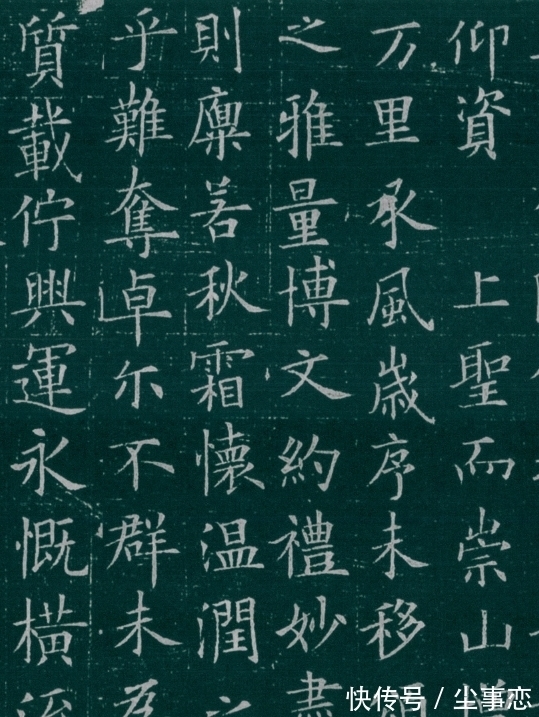 仰資 上聖而崇山
万里承風歲序未移
之雅量博文約禮妙盡
則廩若秋霜懷温潤之
乎難奪卓尓不群未為
質載佇興運永慨橫流
快传号 / 尘事恋